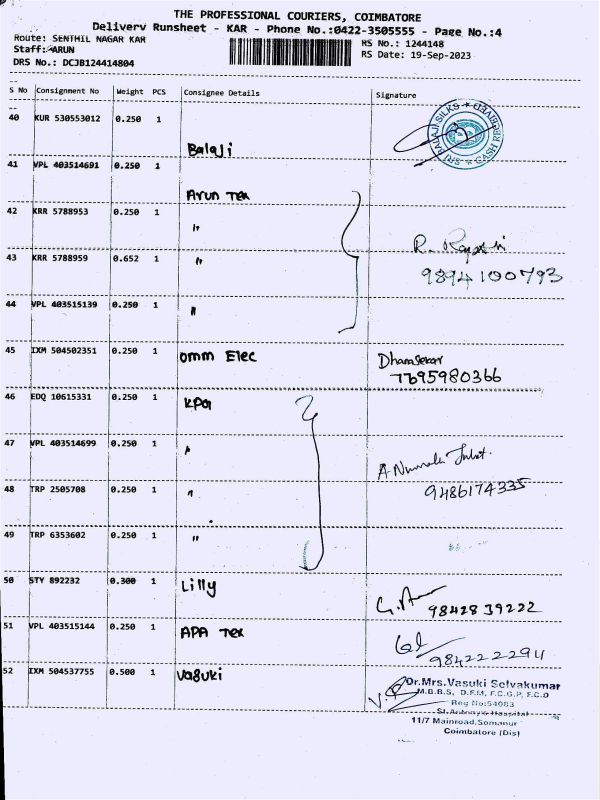 THE PROFESSIONAL COURIERS, COIMBATORE
Delivery Runsheet - KAR - Phone No.:0422-3505555 - Page No.:4
Route: SENTHIL NAGAR KAR
Staff: ARUN
DRS No.: DCJB124414804
RS No.: 1244148
RS Date: 19-Sep-2023
S No Consignment No Weight PCS Consignee Details Signature
40 KUR 530553012 0.250 1 Balaji
SRI BALAJI SILKS CASH RECEIVED
41 VPL 403514691 0.250 1 Arun Tex
42 KRR 5788953 0.250 1 "
43 KRR 5788959 0.652 1 "
9894100793
44 VPL 403515139 0.250 1 "
45 IXM 504502351 0.250 1 omm Elec Dhanasekar
7695980366
46 EDQ 10615331 0.250 1
47 VPL 403514699 0.250 1 "
48 TRP 2505708 0.250 1 "
9486174335
49 TRP 6353602 0.250 1 "
50 STY 892232 0.300 1 Lilly
9842839222
51 VPL 403515144 0.250 1 APA Tex
9842222911
52 IXM 504537755 0.500 1 Vasuki
Dr.Mrs.Vasuki Selvakumar
M.B.B.S, D.F.M, F.C.G.P, F.C.D
Reg No:54083
St.Antony's Hospital
11/7 Mainroad,Somanur
Coimbatore (Dis)